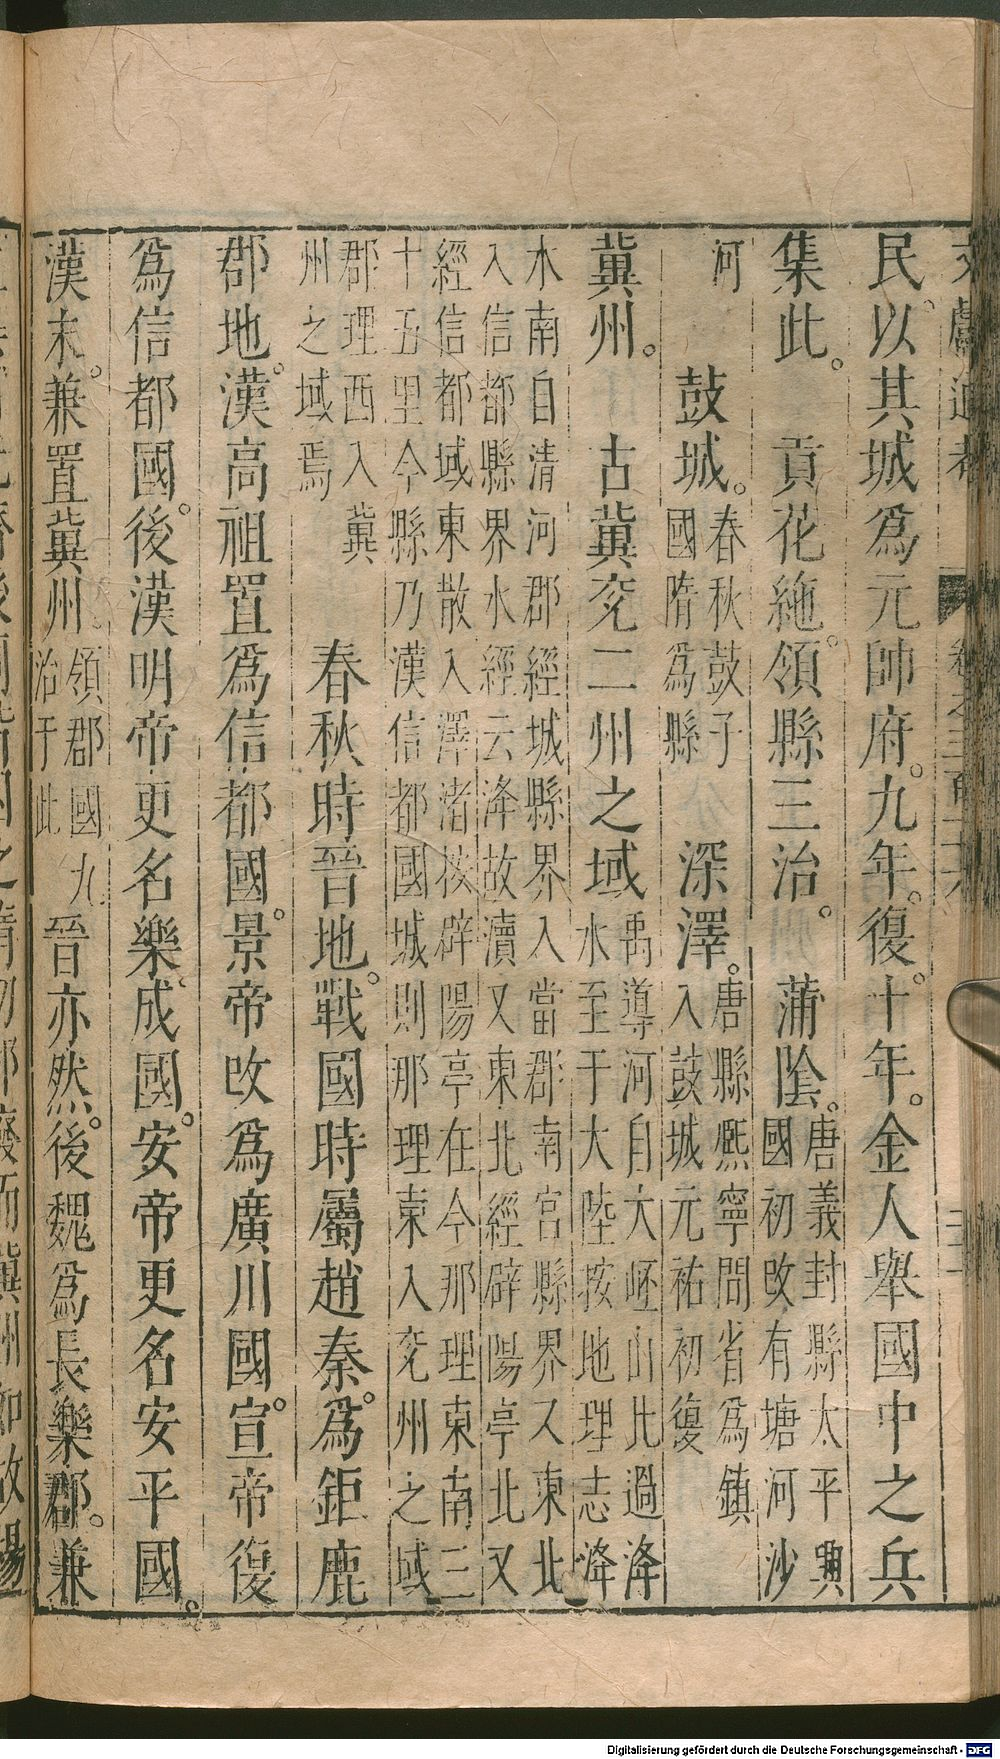 文獻通考 卷之三百十六
民。以其城爲元帥府。九年。復。十年。金人舉國中之兵
集此。 貢花絁。領縣三治。 蒲陰。唐義封縣太平興
國初改有塘河沙
河 鼓城。春秋鼓子
國隋爲縣 深澤。唐縣熙寧問省爲鎮
入鼓城元祐初復
冀州。 古冀兖二州之域禹導河自大岯山北過洚
水至于大陸按地理志洚
水南自清河郡經城縣界入當郡南宮縣界又東北
入信都縣界水經云洚故瀆又東北經辟陽亭北又
經信都域東散入澤渚按辟陽亭在今那理東南三
十五里今縣乃漢信都國城則那理東入兖州之域
郡理西入冀
州之域焉 春秋時晉地。戰國時屬趙秦。爲鉅鹿
郡地。漢高祖置爲信都國。景帝改爲廣川國。宣帝復
爲信都國。後漢明帝更名樂成國。安帝更名安平國。
漢末。兼置冀州。領郡國九
治于此 晉亦然。後魏爲長樂郡。兼
Digitalisierung gefördert durch die Deutsche Forschungsgemeinschaft - DFG